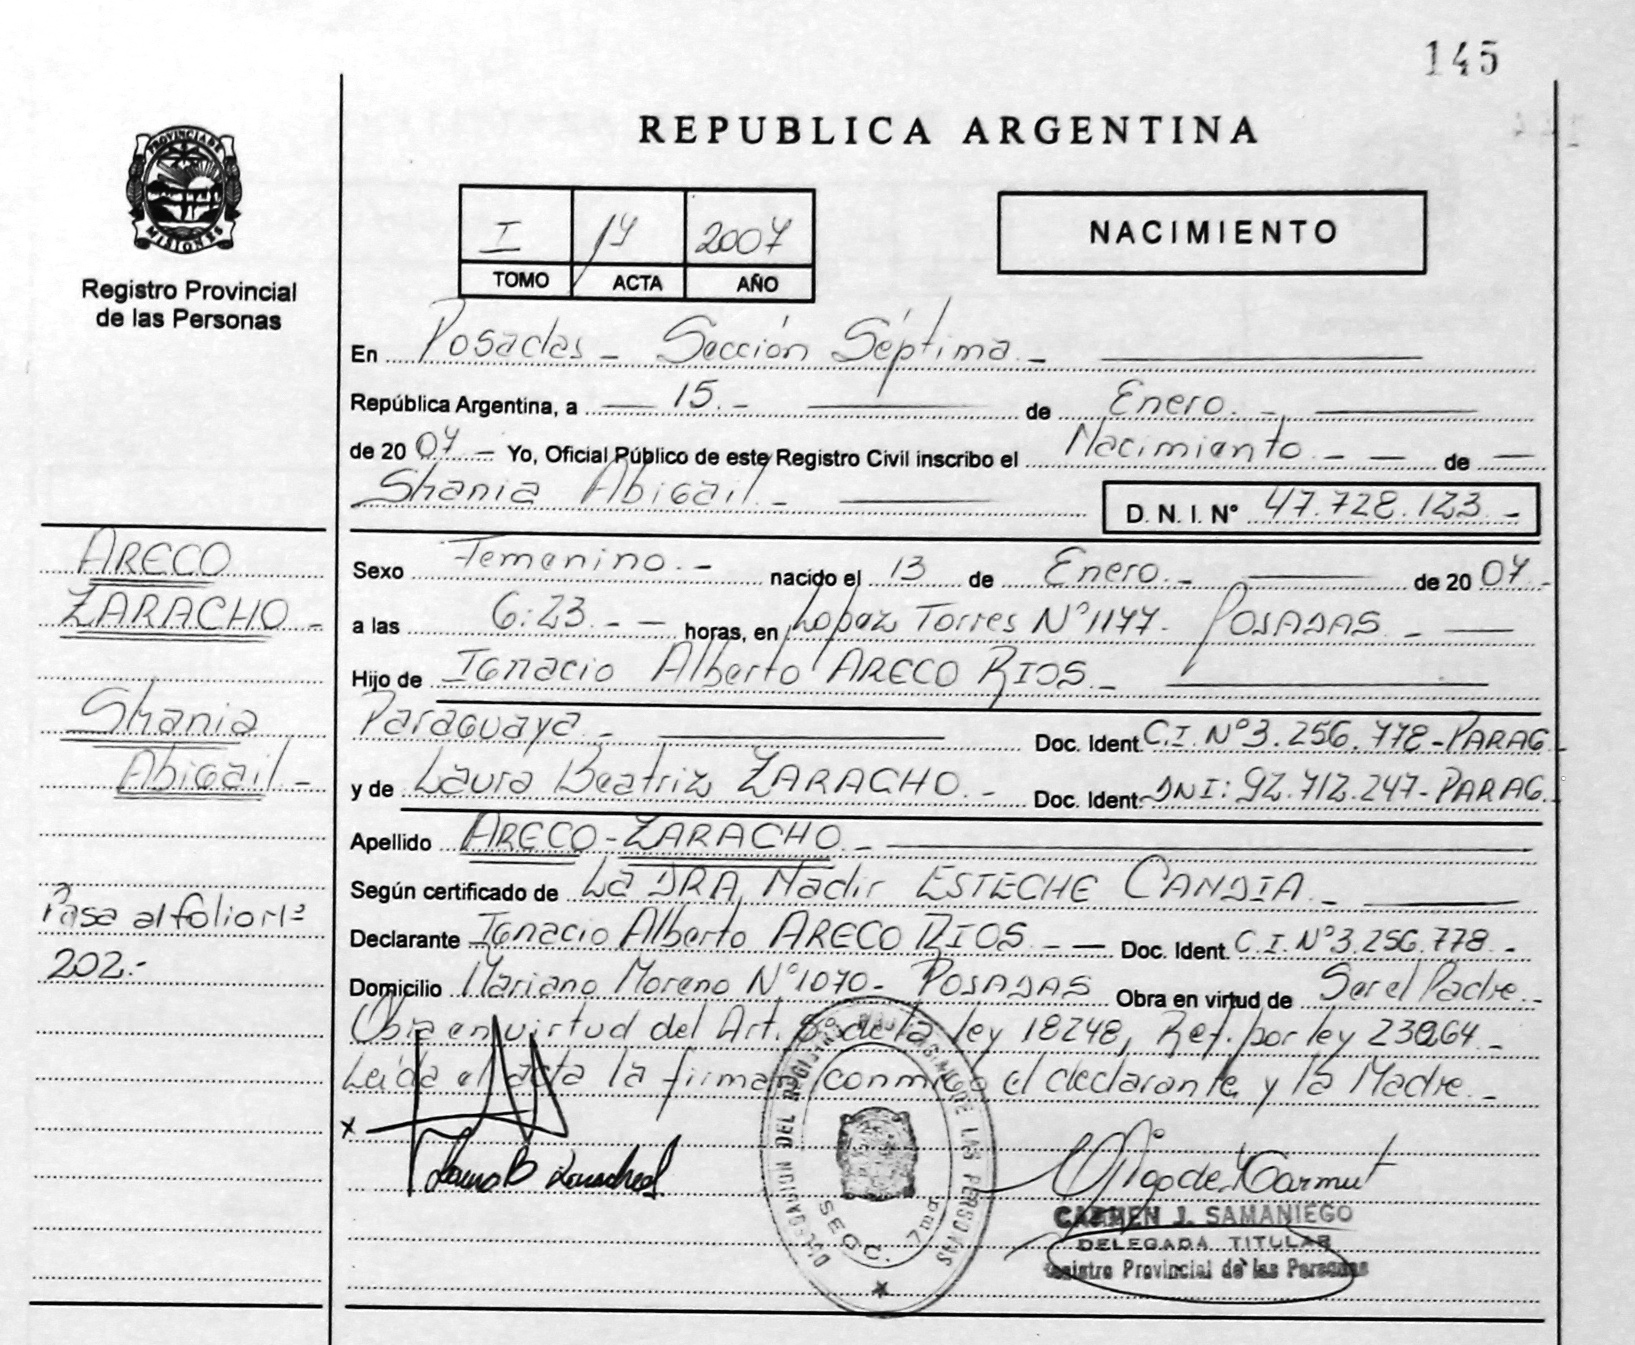 145
REPUBLICA ARGENTINA
PROVINCIA DE
MISIONES
Registro Provincial
de las Personas
I 14 2007
TOMO ACTA AÑO
NACIMIENTO
En Posadas - Sección Séptima -
República Argentina, a 15.- de Enero.-
de 2007.- Yo, Oficial Público de este Registro Civil inscribo el Nacimiento - - de
Shania Abigail - D. N. I. Nº 47.728.123 -
ARECO
ZARACHO -
Shania
Abigail -
Pasa al folio Nº
202.-
Sexo Femenino.- nacido el 13 de Enero.- de 2007.-
a las 6:23.- - horas, en Lopez Torres Nº1177- POSADAS -
Hijo de Ignacio Alberto ARECO RIOS -
Paraguaya - Doc. Ident. C.I. Nº3.256.778-PARAG.
y de Laura Beatriz ZARACHO.- Doc. Ident. DNI: 92.712.247-PARAG.
Apellido ARECO-ZARACHO -
Según certificado de La DRA. Nadir ESTECHE CANDIA -
Declarante Ignacio Alberto ARECO RIOS - - Doc. Ident. C.I. Nº3.256.778.-
Domicilio Mariano Moreno Nº1070- POSADAS Obra en virtud de Ser el Padre.-
Obra en virtud del Art. de la ley 18248, Ref. por ley 23264.-
Leída el acta la firman conmigo el declarante y la Madre.-
x
DELEGACION DEL REGISTRO DE LAS PERSONAS
SECC. 7ma
CARMEN J. SAMANIEGO
DELEGADA TITULAR
Registro Provincial de las Personas